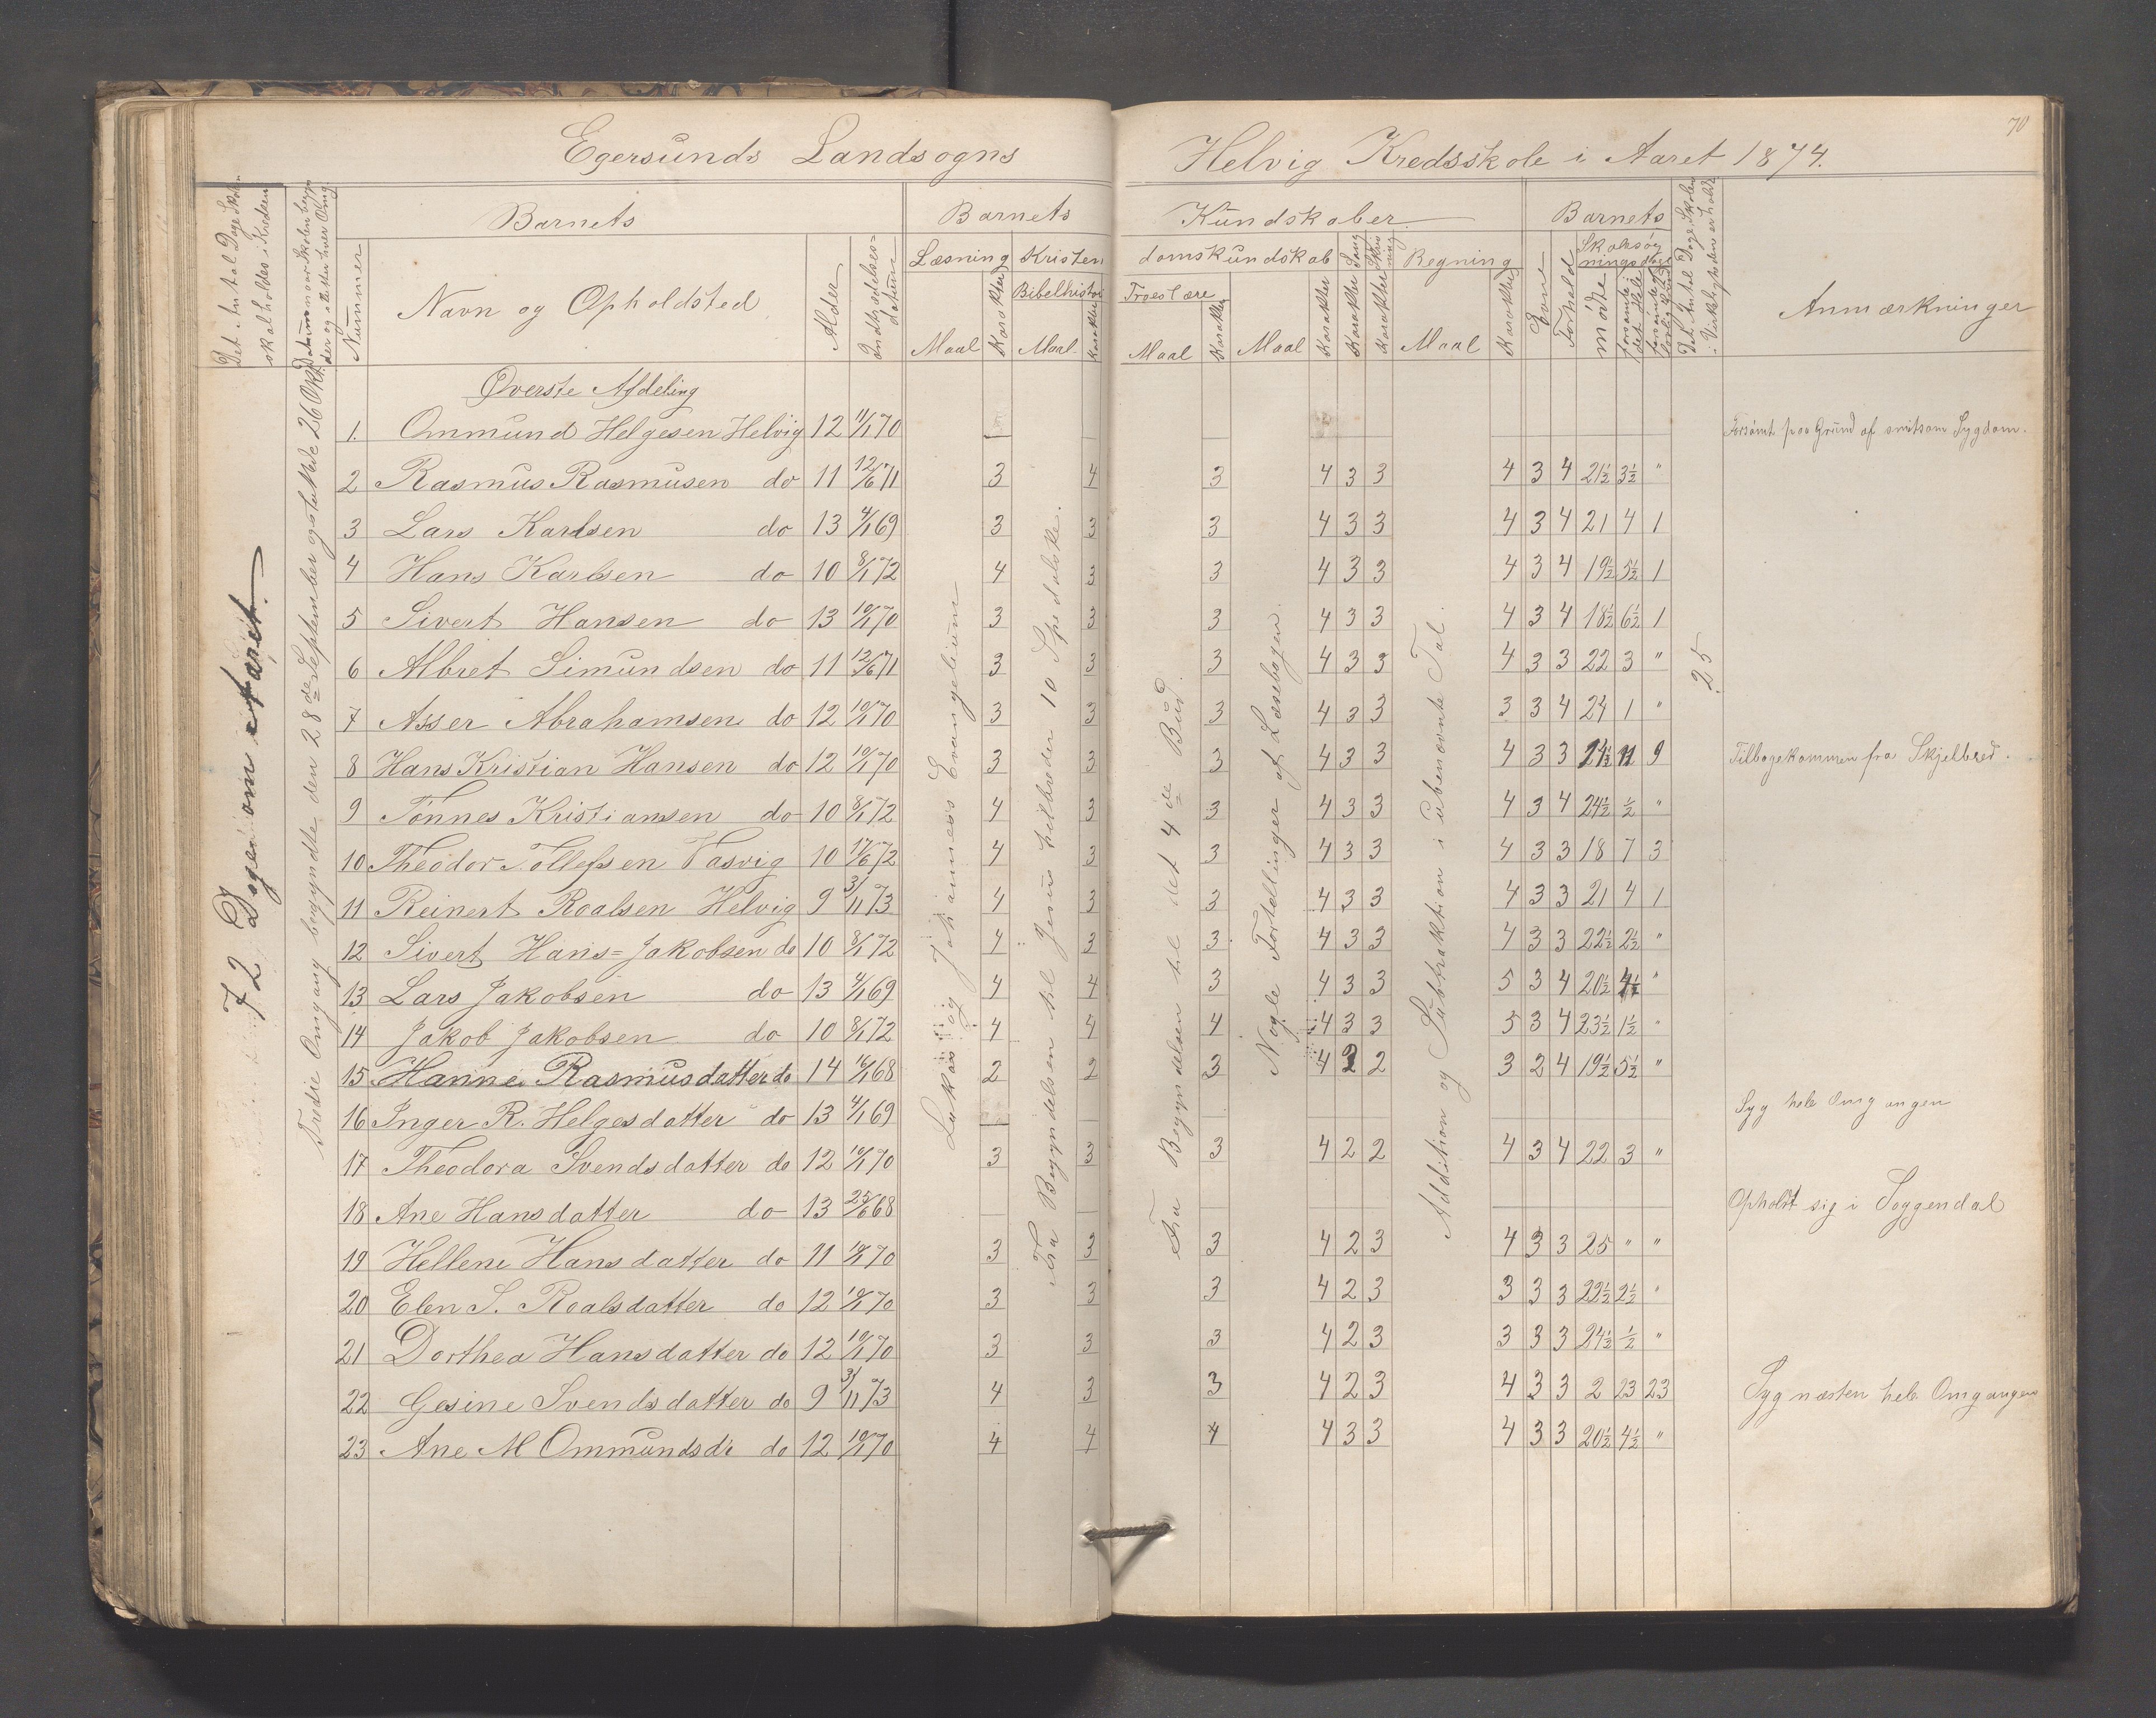 70
Egersunds Landsogns Helvig Kredsskole i Aaret 1874.
Det Antal Dage Skolen skal holdes i Kredsen
Datum naar Skolen begynder og slutter hver Omg.
Nummer
Barnets
Navn og Opholdsted
Alder
Indtrædelses-datum
Barnets Kundskaber
Læsning
Maal
Karakter
Kristendomskundskab
Bibelhistor
Maal
Karakter
Troeslære
Maal
Karakter
Maal
Karakter
Sang
Karakter
Skrivning
Karakter
Regning
Maal
Karakter
Barnets
Evne
Forhold
Skolesøgningsdage
mødte
forsømte i det Hele
Det Antal Dage Skolen i Virkeligheden er holdt
Anmærkninger
72 Dage om Aaret.
Tredie Omgang begyndte den 28de September og sluttede 26 Okt.
Lukas og Johannes's Evangelium
Fra Begyndelsen til Jesus helbreder 10 Spedalske.
Fra Begyndelsen til det 4de Bud.
Nogle Fortellinger af Læsebogen.
Addition og Subtraktion i ubenævnte Tal.
25
Øverste Afdeling
1. Ommund Helgesen Helvig 12 11/1 70 Forsømt paa Grund af smitsom Sygdom.
2 Rasmus Rasmusen do 11 12/6 71 3 4 3 4 3 3 4 3 4 21½ 3½ "
3 Lars Karlsen do 13 4/1 69 3 3 3 4 3 3 4 3 4 21 4 1
4 Hans Karlsen do 10 8/1 72 4 3 3 4 3 3 4 3 4 19½ 5½ 1
5 Sivert Hansen do 13 10/1 70 3 3 3 4 3 3 4 3 4 18½ 6½ 1
6 Albret Simundsen do 11 12/6 71 3 3 3 4 3 3 4 3 3 22 3 "
7 Asser Abrahamsen do 12 10/1 70 3 3 3 4 3 3 3 3 4 24 1 "
8 Hans Kristian Hansen do 12 10/1 70 3 3 3 4 3 3 4 3 3 11 9 Tilbagekommen fra Skjelbred.
9 Tønnes Kristiansen do 10 8/1 72 4 3 3 4 3 3 4 3 4 24½ ½ "
10 Theodor Tollefsen Vasvig 10 17/6 72 4 3 3 4 3 3 4 3 3 18 7 3
11 Reinert Roalsen Helvig 9 3/11 73 4 3 3 4 3 3 4 3 3 21 4 1
12 Sivert Hans=Jakobsen do 10 8/1 72 4 3 3 4 3 3 4 3 3 22½ 2½ "
13 Lars Jakobsen do 13 4/1 69 4 4 3 4 3 3 5 3 4 20½ 4½ "
14 Jakob Jakobsen do 10 8/1 72 4 4 4 4 3 3 5 3 4 23½ 1½ "
15 Hanne Rasmusdatter do 14 16/1 68 2 2 3 4 2 2 3 2 4 19½ 5½ "
16 Inger R. Helgesdatter do 13 4/1 69 Syg hele Omgangen
17 Theodora Svendsdatter do 12 10/1 70 3 3 3 4 2 2 4 3 4 22 3 "
18 Ane Hansdatter do 13 25/6 68 Opholdt sig i Soggendal
19 Hellene Hansdatter do 11 10/1 70 3 3 3 4 2 3 4 3 3 25 " "
20 Elen S. Roalsdatter do 12 10/1 70 3 3 3 4 2 3 3 3 3 22½ 2½ "
21 Dorthea Hansdatter do 12 10/1 70 3 3 3 4 2 3 3 3 3 24½ ½ "
22 Gesine Svendsdatter do 9 3/11 73 4 3 3 4 2 3 4 3 3 2 23 23 Syg næsten hele Omgangen
23 Ane M Ommundsdr do 12 10/1 70 4 4 4 4 3 3 4 3 3 20½ 4½ "